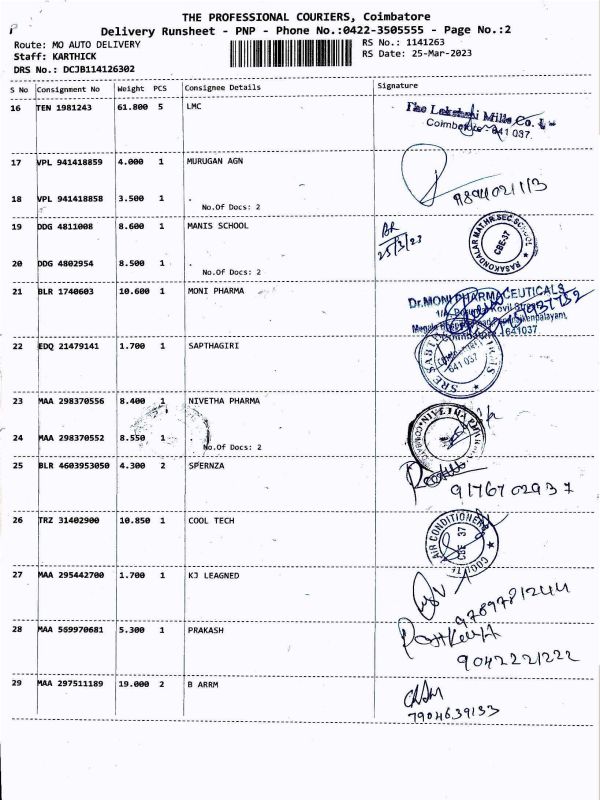 THE PROFESSIONAL COURIERS, Coimbatore
Delivery Runsheet - PNP - Phone No.:0422-3505555 - Page No.:2
Route: MO AUTO DELIVERY
RS No.: 1141263
Staff: KARTHICK
RS Date: 25-Mar-2023
DRS No.: DCJB114126302
S No Consignment No Weight PCS Consignee Details Signature
16 TEN 1981243 61.800 5 LMC
The Lakshmi Mills Co. L
Coimbatore - 641 037.
17 VPL 941418859 4.000 1 MURUGAN AGN
18 VPL 941418858 3.500 1 .
No.Of Docs: 2
19 DDG 4811008 8.600 1 MANIS SCHOOL
25/3/23
RASAKONDALAR MAT.HR.SEC.SCHOOL
CBE-37
20 DDG 4802954 8.500 1 .
No.Of Docs: 2
21 BLR 1740603 10.600 1 MONI PHARMA
Dr.MONI PHARMACEUTICALS
641037
22 EDQ 21479141 1.700 1 SAPTHAGIRI
641 037
23 MAA 298370556 8.400 1 NIVETHA PHARMA
NIVETHA
24 MAA 298370552 8.550 1 .
No.Of Docs: 2
25 BLR 4603953050 4.300 2 SPERNZA
9176702937
26 TRZ 31402900 10.850 1 COOL TECH
AIR CONDITIONERS
CBE 37
27 MAA 295442700 1.700 1 KJ LEAGNED
9789781244
28 MAA 569970681 5.300 1 PRAKASH
9042221222
29 MAA 297511189 19.000 2 B ARRM
7904639133